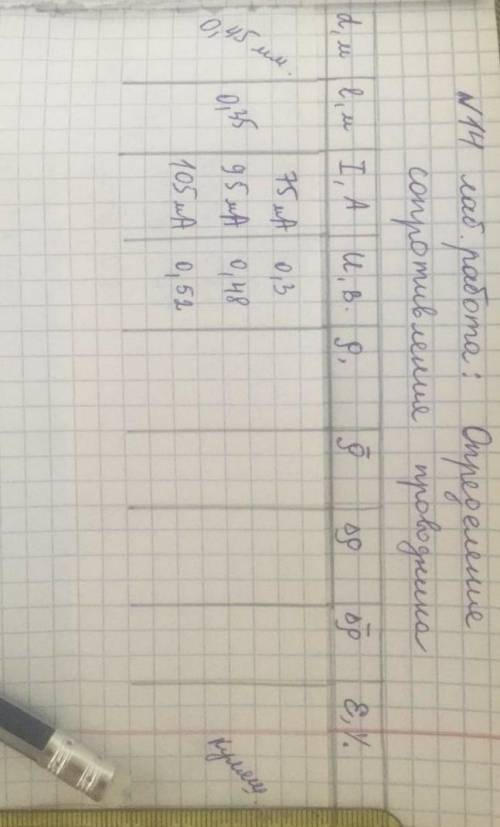 N14 лаб. работа: Определение
сопротивления проводника
d, м l, м I, А U, В. ρ, ρ̄ Δρ Δρ̄ ε, %.
75 мА 0,3
0,45 мм. 0,35 95 мА 0,48
105 мА 0,52